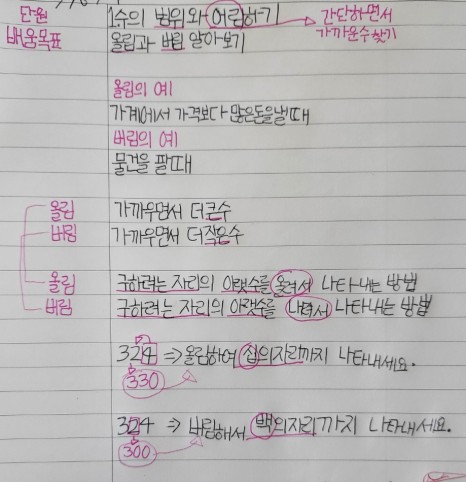 단원 1.수의 범위와 어림하기 → 간단하면서
배움목표 올림과 버림 알아보기 가까운수찾기
올림의 예
가게에서 가격보다 많은돈을낼때
버림의 예
물건을 팔때
올림 가까우면서 더큰수
버림 가까우면서 더작은수
올림 구하려는 자리의 아랫수를 올려서 나타내는 방법
버림 구하려는 자리의 아랫수를 내려서 나타내는 방법
324 ⇒ 올림하여 십의자리까지 나타내세요.
330
324 ⇒ 버림해서 백의자리까지 나타내세요.
300